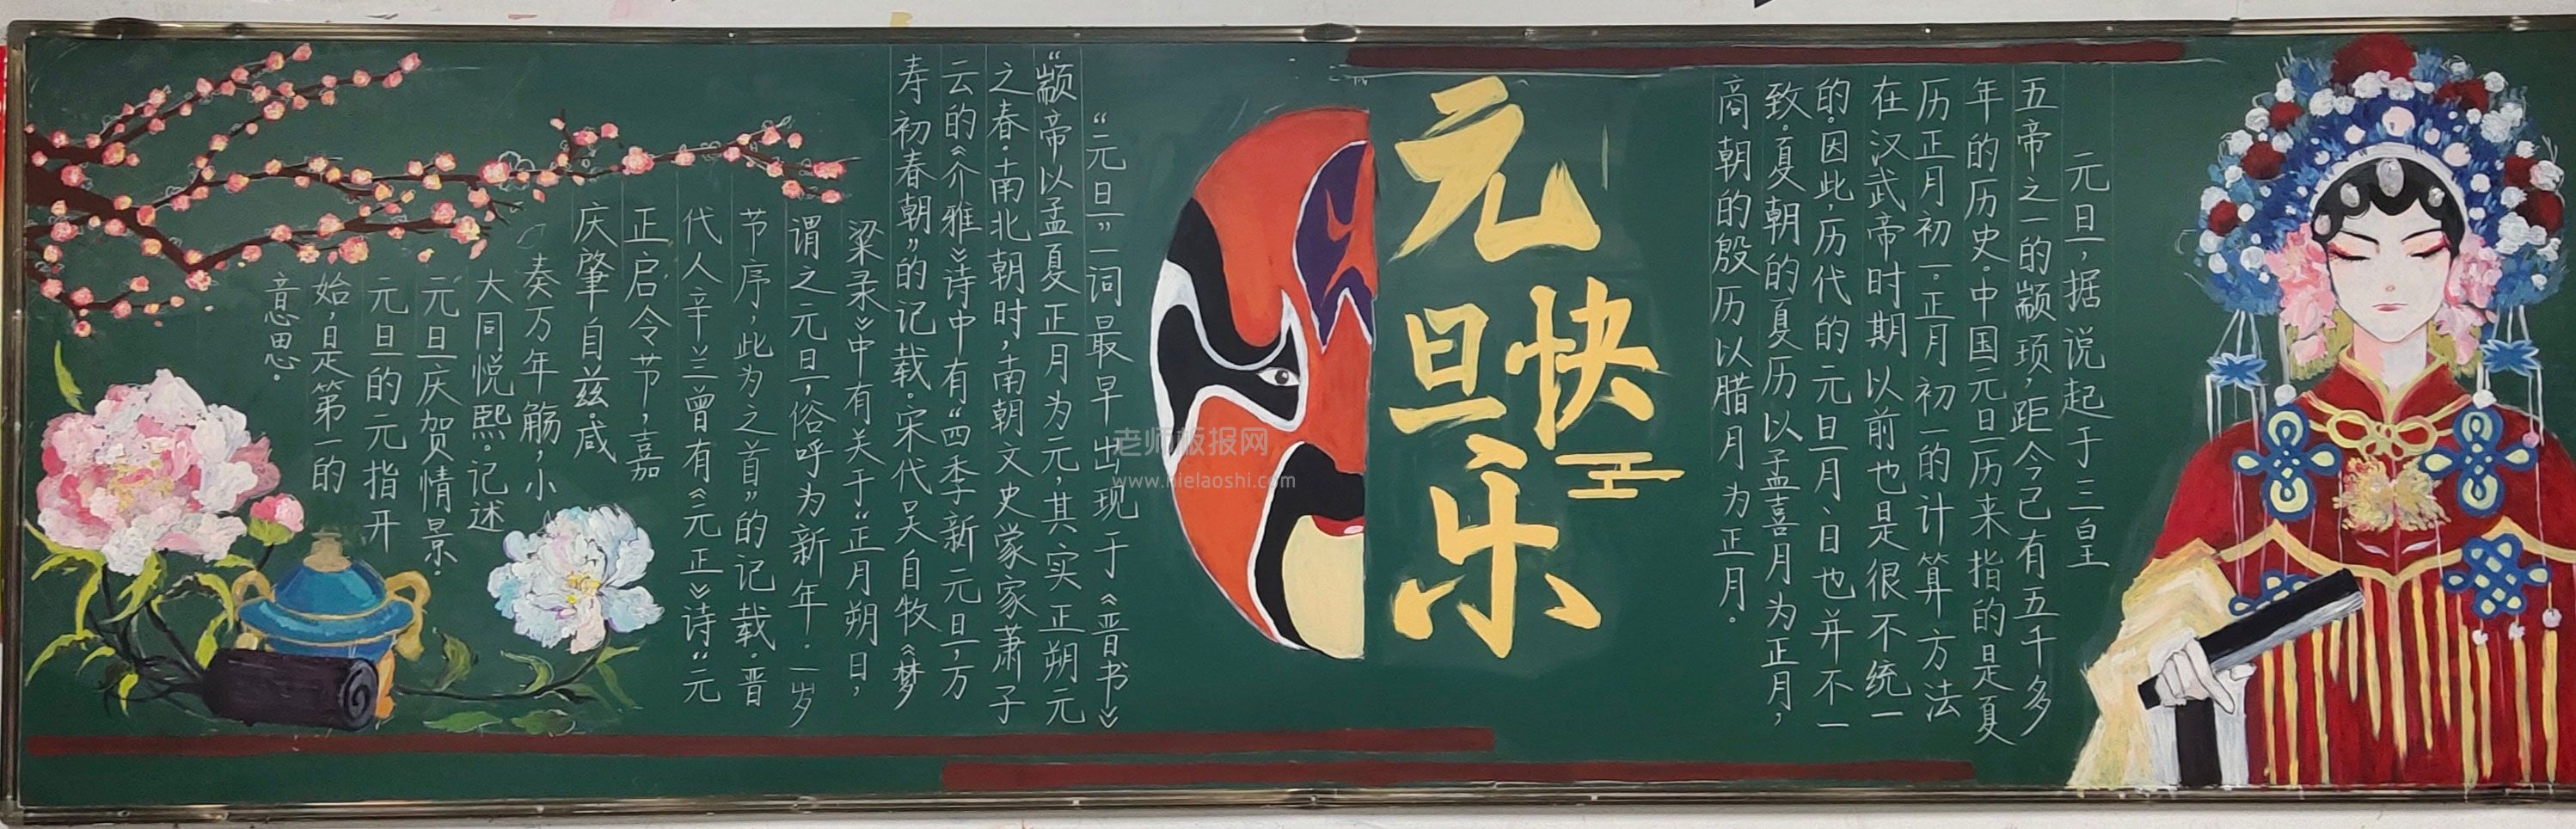 元旦,据说起于三皇
五帝之一的颛顼,距今已有五千多
年的历史.中国元旦历来指的是夏
历正月初一.正月初一的计算方法
在汉武帝时期以前也是很不统一
的.因此,历代的元旦月、日也并不一
致.夏朝的夏历以孟喜月为正月,
商朝的殷历以腊月为正月.
元旦
快乐
“元旦”一词最早出现于《晋书》
“颛帝以孟夏正月为元,其实正朔元
之春.南北朝时,南朝文史蒙家萧子
云的《介雅》诗中有“四季新元旦,万
寿初春朝”的记载.宋代吴自牧《梦
粱录》中有关于“正月朔日,
谓之元旦,俗呼为新年.一岁
节序,此为之首”的记载.晋
代人辛兰曾有《元正》诗“元
正启令节,嘉
庆肇自兹.咸
奏万年觞,小
大同悦熙.记述
元旦庆贺情景.
元旦的元指开
始,是第一的
意思.
老师板报网
www.nielaoshi.com